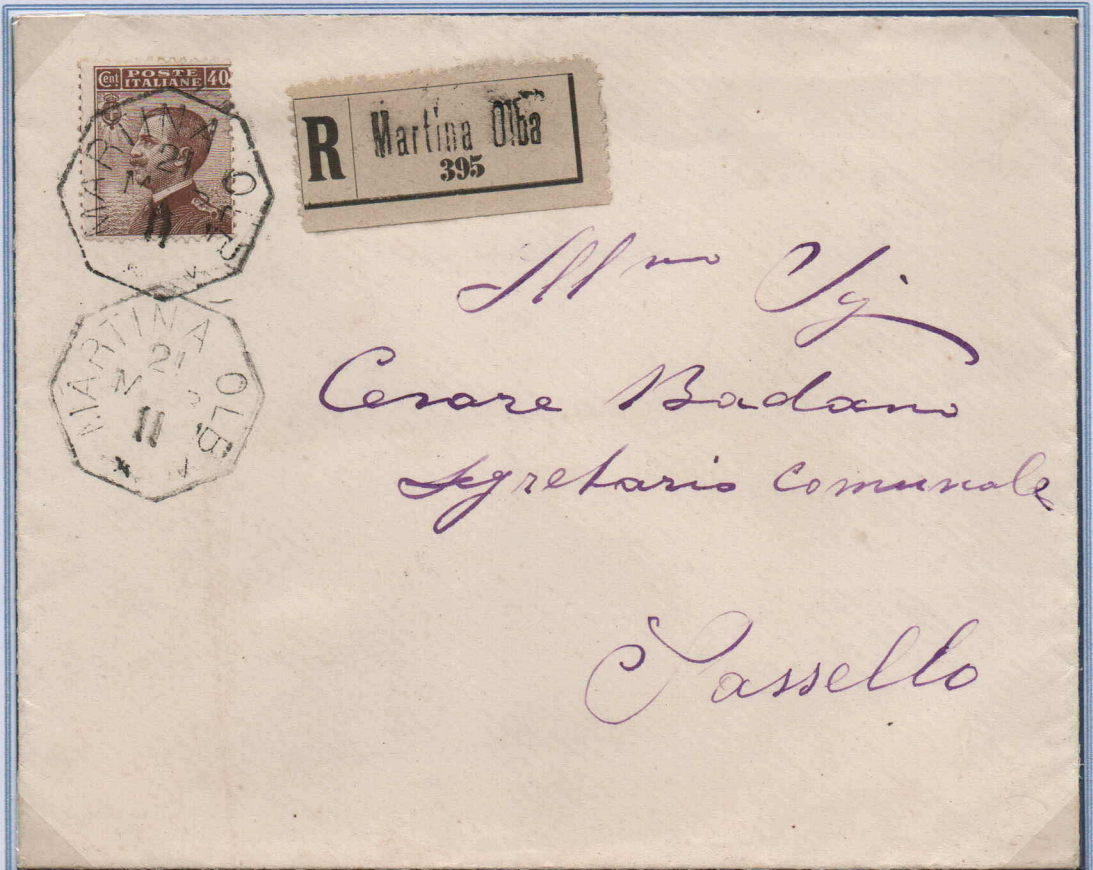 Cent POSTE ITALIANE 40
MARTINA OLBA
21
11
R Martina Olba
395
MARTINA OLBA
21
11
Ill mo Sig
Cesare Badano
Segretario Comunale
Sassello